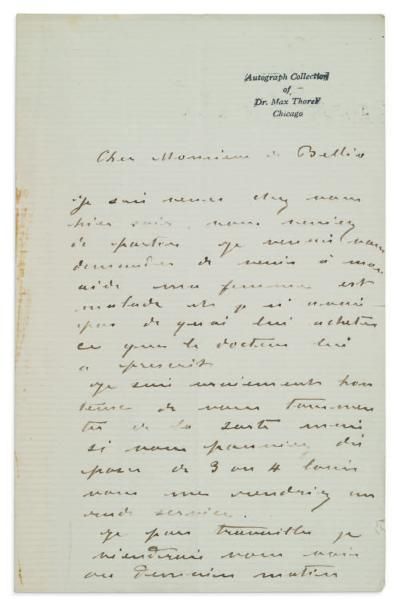 Autograph Collection
of
Dr. Max Thorek
Chicago
Cher Monsieur de Bellio
Je suis venu chez vous
hier soir, vous veniez
de partir je venais vous
demander de venir à mon
aide ma femme est
malade et je n'avais
pas de quoi lui acheter
ce que le docteur lui
a prescrit
Je suis vraiement hon
teux de vous tourmen
ter de la sorte mais
si vous pouviez dis
poser de 3 ou 4 louis
vous me rendriez un
rude service.
je pars travailler je
viendrais vous voir
ou demain matin